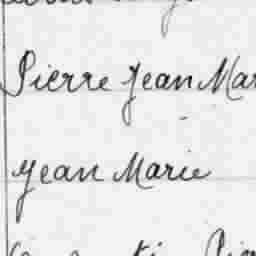 Pierre Jean Mar
Jean Marie